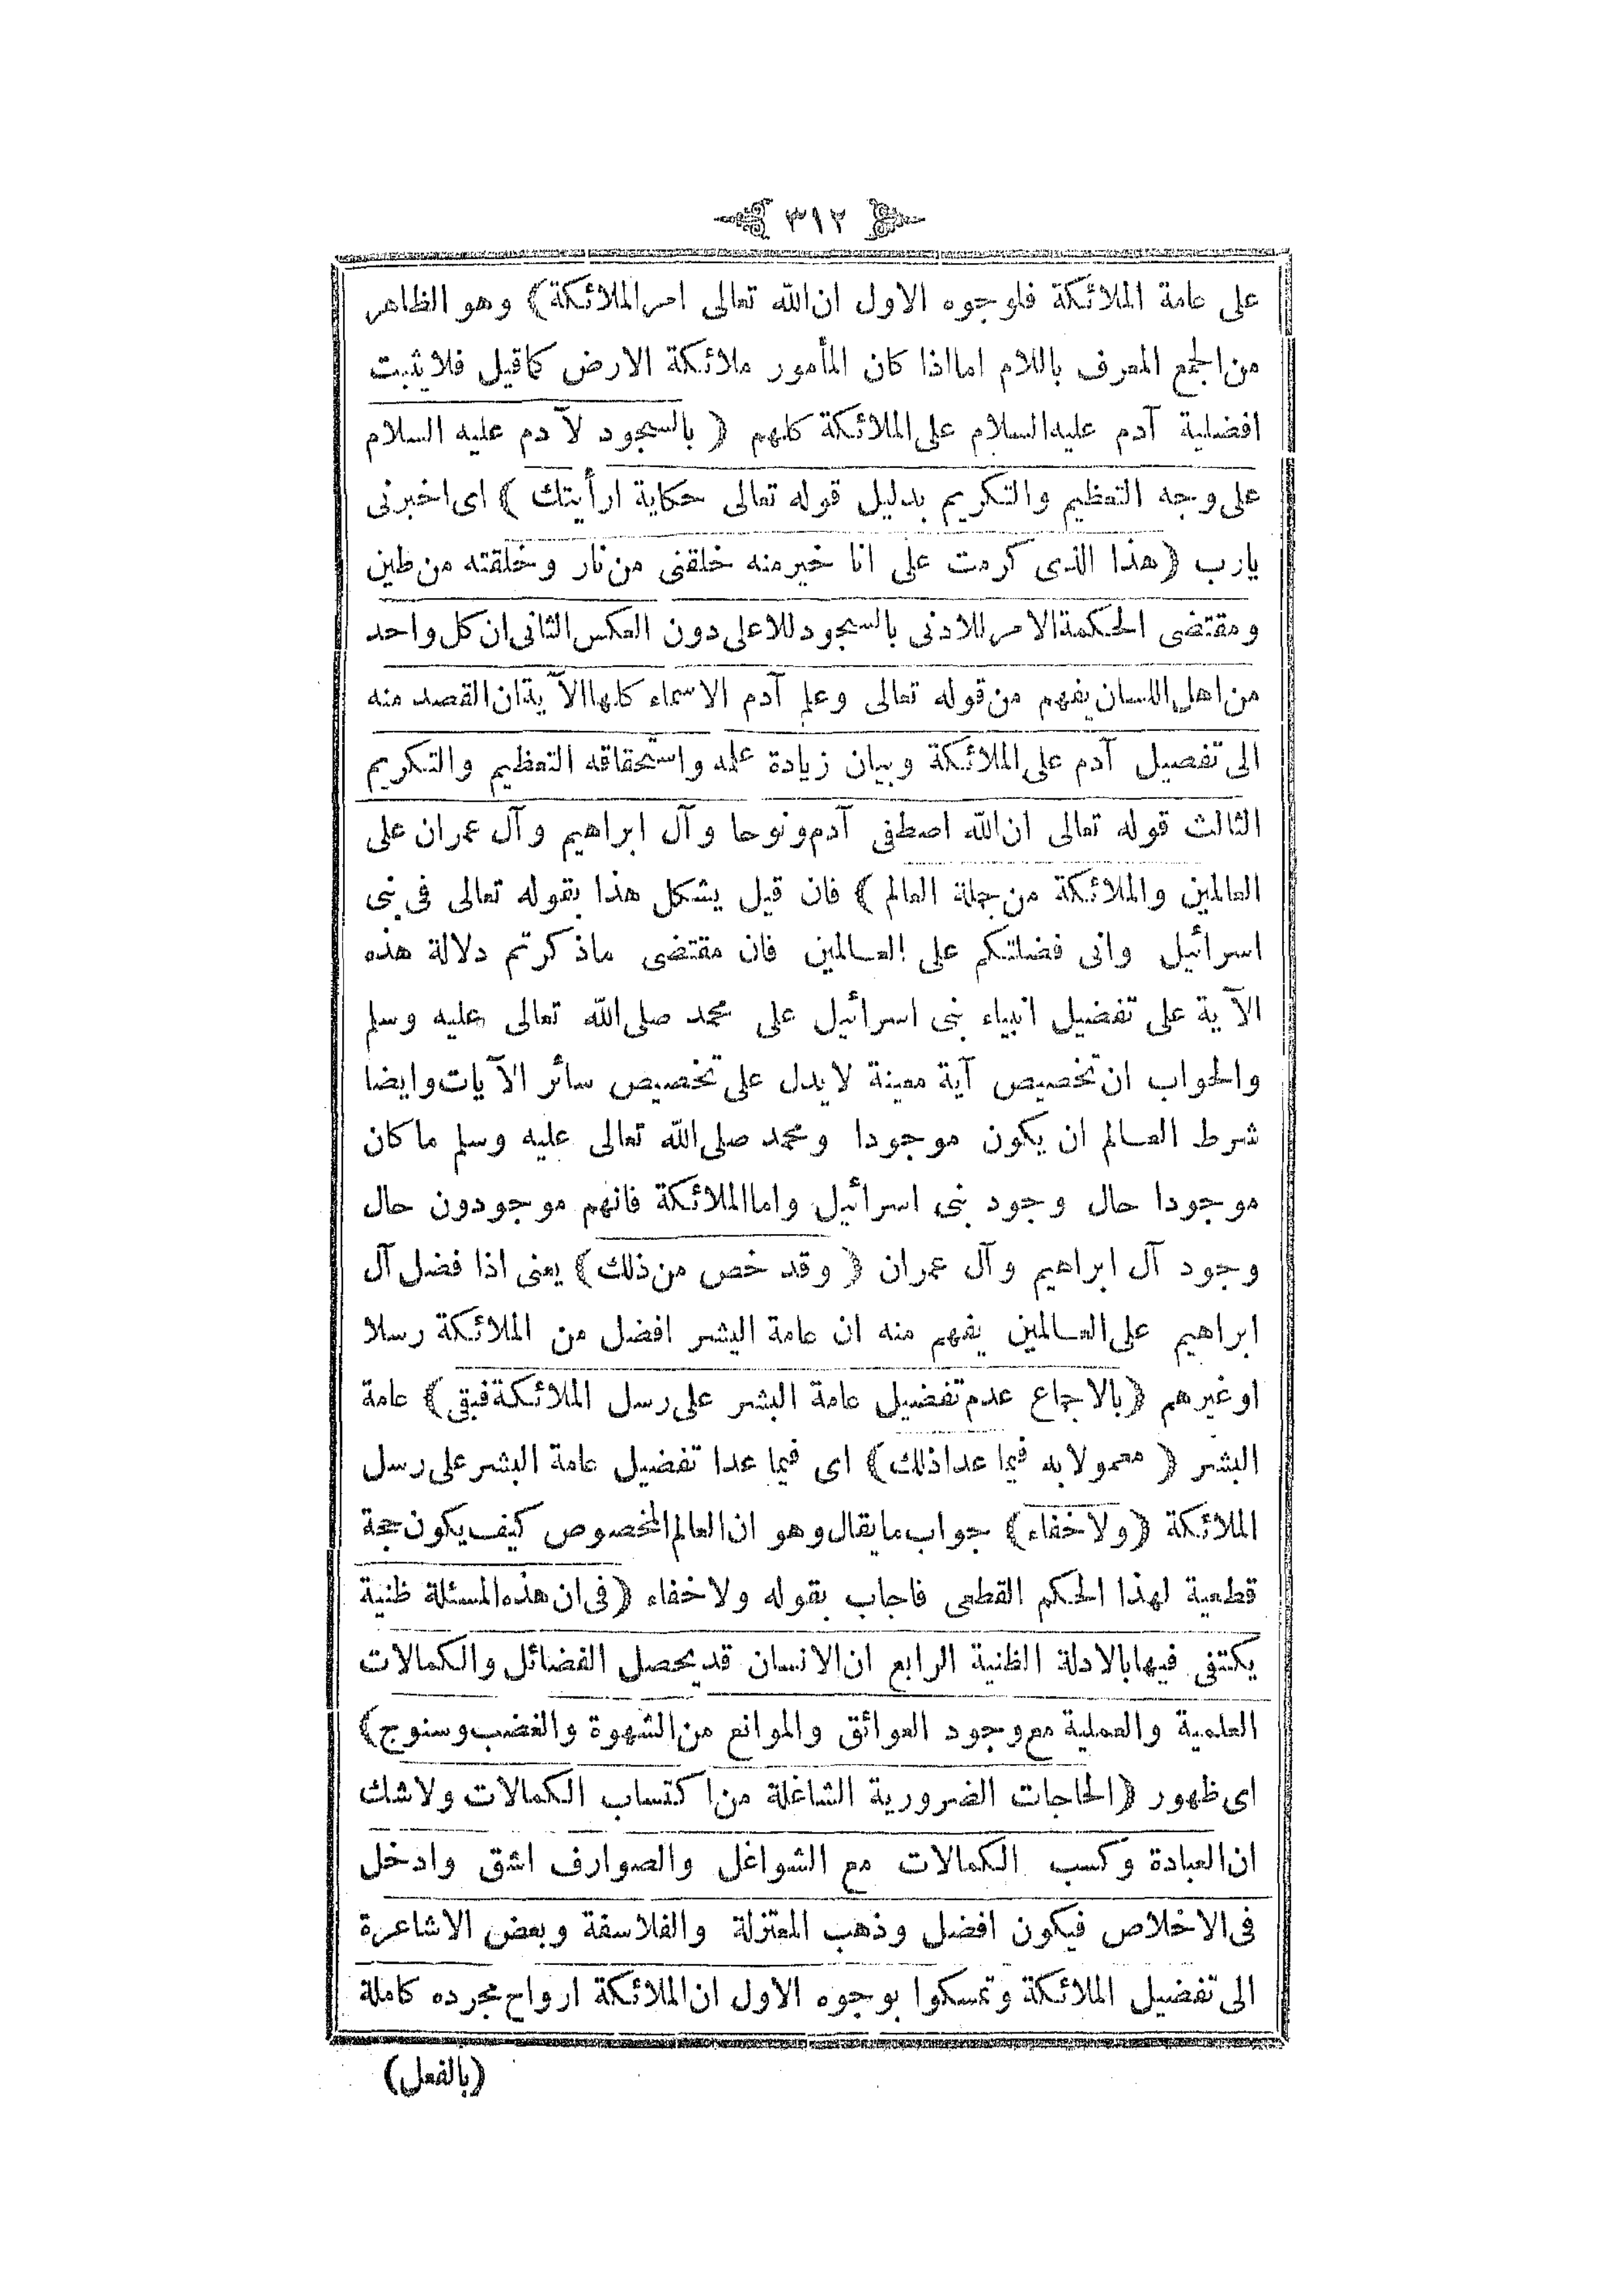 ٣١٢
على عامة الملائكة فلوجوه الاول ان الله تعالى امر الملائكة ) وهو الظاهر
من الجمع المعرف باللام اما اذا كان المأمور ملائكة الارض كما قيل فلا يثبت
افضلية آدم عليه السلام على الملائكة كلهم ( بالسجود لآدم عليه السلام
على وجه التعظيم والتكريم بدليل قوله تعالى حكاية ارأيتك ) اى اخبرنى
يارب ( هذا الذى كرمت على انا خير منه خلقنى من نار وخلقته من طين
ومقتضى الحكمة الامر للادنى بالسجود للاعلى دون العكس الثانى ان كل واحد
من اهل اللسان يفهم من قوله تعالى وعلم آدم الاسماء كلها الآية ان القصد منه
الى تفصيل آدم على الملائكة وبيان زيادة علمه واستحقاقه التعظيم والتكريم
الثالث قوله تعالى ان الله اصطفى آدم ونوحا وآل ابراهيم وآل عمران على
العالمين والملائكة من جملة العالم ) فان قيل يشكل هذا بقوله تعالى فى بنى
اسرائيل وانى فضلتكم على العالمين فان مقتضى ماذكرتم دلالة هذه
الآية على تفضيل انبياء بنى اسرائيل على محمد صلى الله تعالى عليه وسلم
والجواب ان تخصيص آية معينة لا يدل على تخصيص سائر الآيات وايضا
شرط العالم ان يكون موجودا ومحمد صلى الله تعالى عليه وسلم ما كان
موجودا حال وجود بنى اسرائيل واما الملائكة فانهم موجودون حال
وجود آل ابراهيم وآل عمران ( وقد خص من ذلك ) يعنى اذا فضل آل
ابراهيم على العالمين يفهم منه ان عامة البشر افضل من الملائكة رسلا
او غيرهم ( بالاجماع عدم تفضيل عامة البشر على رسل الملائكة فبقى ) عامة
البشر ( معمولا به فيما عدا ذلك ) اى فيما عدا تفضيل عامة البشر على رسل
الملائكة ( ولا خفاء ) جواب ما يقال وهو ان العالم المخصوص كيف يكون حجة
قطعية لهذا الحكم القطعى فاجاب بقوله ولا خفاء ( فى ان هذه المسئلة ظنية
يكتفى فيها بالادلة الظنية الرابع ان الانسان قد يحصل الفضائل والكمالات
العلمية والعملية مع وجود العوائق والموانع من الشهوة والغضب وسنوح )
اى ظهور ( الحاجات الضرورية الشاغلة من اكتساب الكمالات ولاشك
ان العبادة وكسب الكمالات مع الشواغل والصوارف اشق وادخل
فى الاخلاص فيكون افضل وذهب المعتزلة والفلاسفة وبعض الاشاعرة
الى تفضيل الملائكة وتمسكوا بوجوه الاول ان الملائكة ارواح مجرده كاملة
(بالفعل)